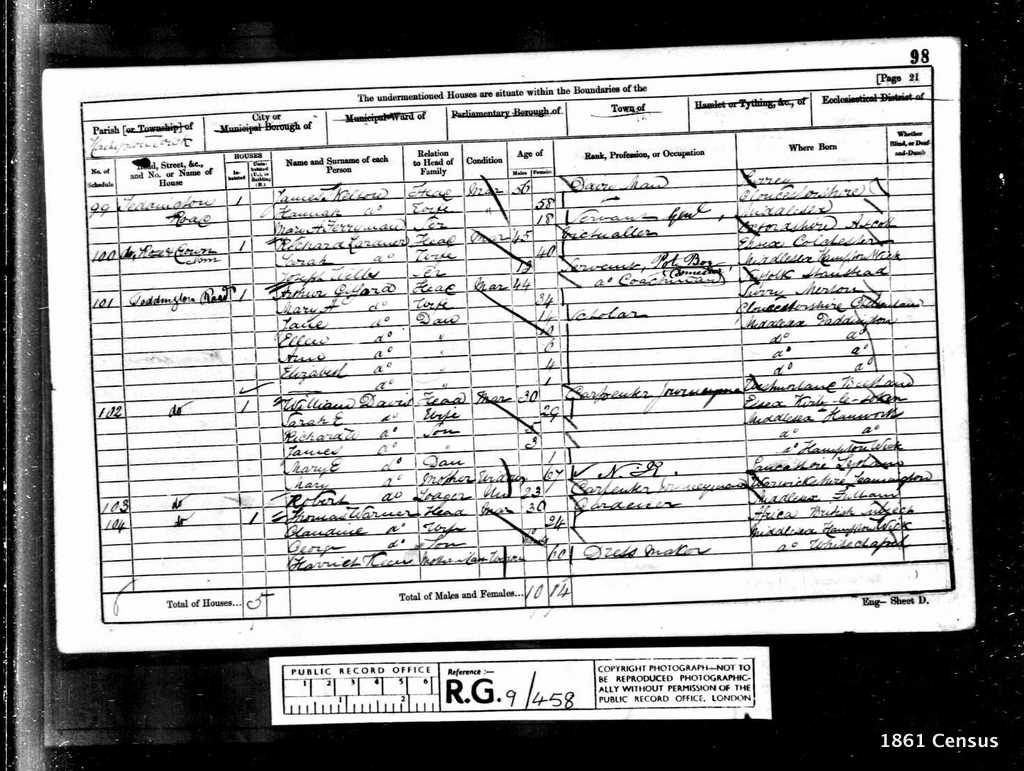 98
[Page 21
The undermentioned Houses are situate within the Boundaries of the
Parish [or Township] of
City or Municipal Borough of
Municipal Ward of
Parliamentary Borough of
Town of
Hamlet or Tything, &c., of
Ecclesiastical District of
No. of Schedule
Street, &c., and No. or Name of House
HOUSES
Inhabited
Name and Surname of each Person
Relation to Head of Family
Condition
Age of
Males
Females
Rank, Profession, or Occupation
Where Born
Whether Blind, or Deaf-and-Dumb
99 Teddington Road 1 James Nelson Head Mar 56 Dairy Man Surrey
Hannah do Wife 58 Gloucestershire
Mary A Ferryman Ser 18 Servant Genl Middlesex
100 1 Richard Head Mar 45 Victualler Oxfordshire
Sarah do Wife 40 Essex Colchester
Joseph Ser Servant, Pot Boy Middlesex Hampton Wick
101 Teddington Road 1 Arthur Head Mar 44 do Coachman (Domestic) Suffolk Stanstead
Mary A do Wife 34 Surry Merton
Jane do Dau 14 Scholar Gloucestershire
Ellen do " 10 Middlesex Paddington
Ann do " 6 do do
Elizabeth do " 4 do do
do " 1 do do
102 do 1 William Davis Head Mar 30 Carpenter journeyman Westmorland
Sarah E do Wife 29 Essex Kirby-le-Soken
Richard W do Son 5 Middlesex Hanworth
James do " 3 do do
Mary E do Dau 1 do Hampton Wick
Mary do Mother Widow 67 N.K. Lancashire
103 do Robert do Lodger Un 22 Carpenter journeyman Warwickshire Leamington
104 do 1 Thomas Warner Head Mar 30 Gardener Middlesex Fulham
Claudine do Wife 24 Africa British subject
George do Son Middlesex Hampton Wick
Harriet Mother in Law Widow 60 Dress maker do Whitechapel
Total of Houses... 5
Total of Males and Females... 10 14
Eng— Sheet D.
PUBLIC RECORD OFFICE
1 2 3 4 5 6
1 2
Reference :—
R.G. 9/458
COPYRIGHT PHOTOGRAPH—NOT TO
BE REPRODUCED PHOTOGRAPHIC-
ALLY WITHOUT PERMISSION OF THE
PUBLIC RECORD OFFICE, LONDON
1861 Census